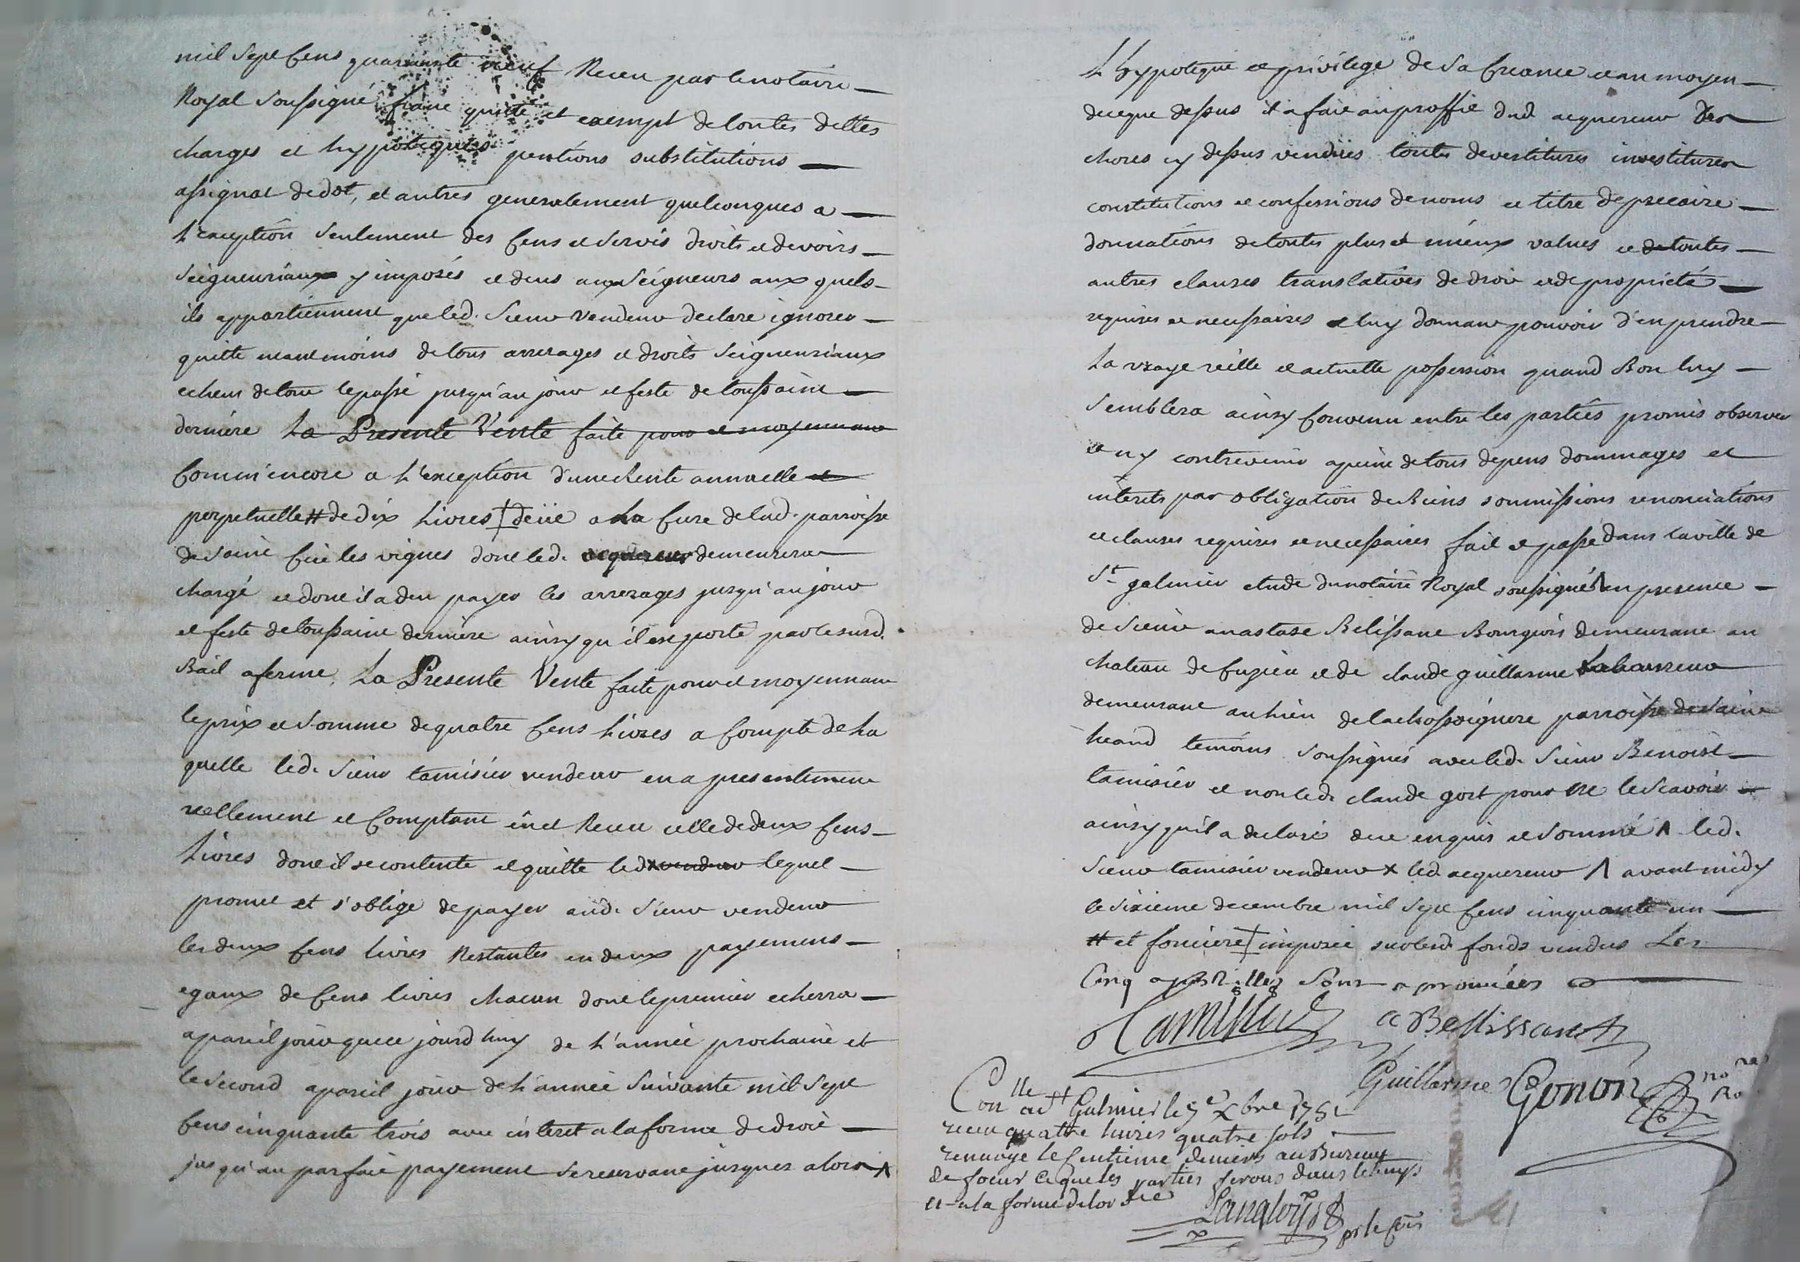 mil sept cens quarante neuf Receu par le notaire
Royal soussigné franc quitte et exempt de toutes dettes
charges et hypoteques pentions substitutions
assignat de dot, et autres generalement quelconques a
l'exception seulement des cens et servis droits et devoirs
seigneuriaux y imposés et deus aux seigneurs aux quels
ils appartiennent que led. sieur vendeur declare ignorer
quitte neantmoins de tous arrerages et droits seigneuriaux
echeus de tout le passé jusqu'au jour et feste de toussaint
derniére La Presente Vente faite pour et moyennant
Comm'encore a l'exception d'une Rente annuelle et
perpetuelle # de dix Livres ‡ deüe a La Cure de lad. parroisse
de saint les vignes dont led. acquereur demeurera
chargé et dont il a deu payer les arrerages jusqu'au jour
et feste de toussaint derniere ainsy qu'il est porté par le susd.
Bail a ferme, La Presente Vente faite pour et moyennant
le prix et somme de quatre Cens Livres a Compte de La
quelle led. sieur tamisier vendeur en a presentement
reellement et Comptant eu et Receu celle de deux Cens
Livres dont il se contente et quitte led x vendeur lequel
promet et s'oblige de payer aud. sieur vendeur
les deux Cens livres Restantes en deux payemens
egaux de Cens livres chacun dont le premier echerra
a pareil jour que ce jourd'huy de l'année prochaine et
le second a pareil jour de l'année suivante mil sept
Cens cinquante trois avec interet a la forme de droit
jusqu'au parfait payement se reservant jusques alors ʌ
L'hypoteque et privilege de sa Creance et au moyen
de ce que dessus il a fait au proffit dud acquereur des
choses cy dessus vendües toutes devestitures investitures
constitutions et confessions de noms et titre de precaire
donnations de toutes plus et mieux values et de toutes
autres clauses translatives de droit et de proprieté
requises et necessaires et luy donnant pouvoir d'en prendre
La vraye réelle et actuelle possession quand Bon luy
semblera ainsy Convenu entre les parties promis observer
et n'y contrevenir a peine de tous depens dommages et
interets par obligation de Biens soumissions renonciations
et clauses requises et necessaires fait et passé dans la ville de
St. galmier etude du notaire Royal soussigné en presence
de sieur anastase Belissant Bourgeois demeurant au
chateau de et de claude guillarme Laboureur
demeurant au lieu de parroisse de saint
heand temoins soussignés avec led. sieur Benoist
tamisier et non led. claude pour ne le scavoir
ainsy qu'il a declaré de ce enquis et sommé ʌ led.
sieur tamisier vendeur x led acquereur ʌ avant midy
le sixieme decembre mil sept Cens cinquante un
# et fonciere ‡ imposée sur lesd fonds vendus Les
Cinq apostilles sont approuvées
Tamisier a Bellissant
Guillarme Gonon
Con.lle a St Galmier le 7e xbre 1751
receu quatre livres quatre sols
renvoyé le Centieme denier au Bureau
de foeur ce que les parties feront dans le temps
et a la forme de
Langloys